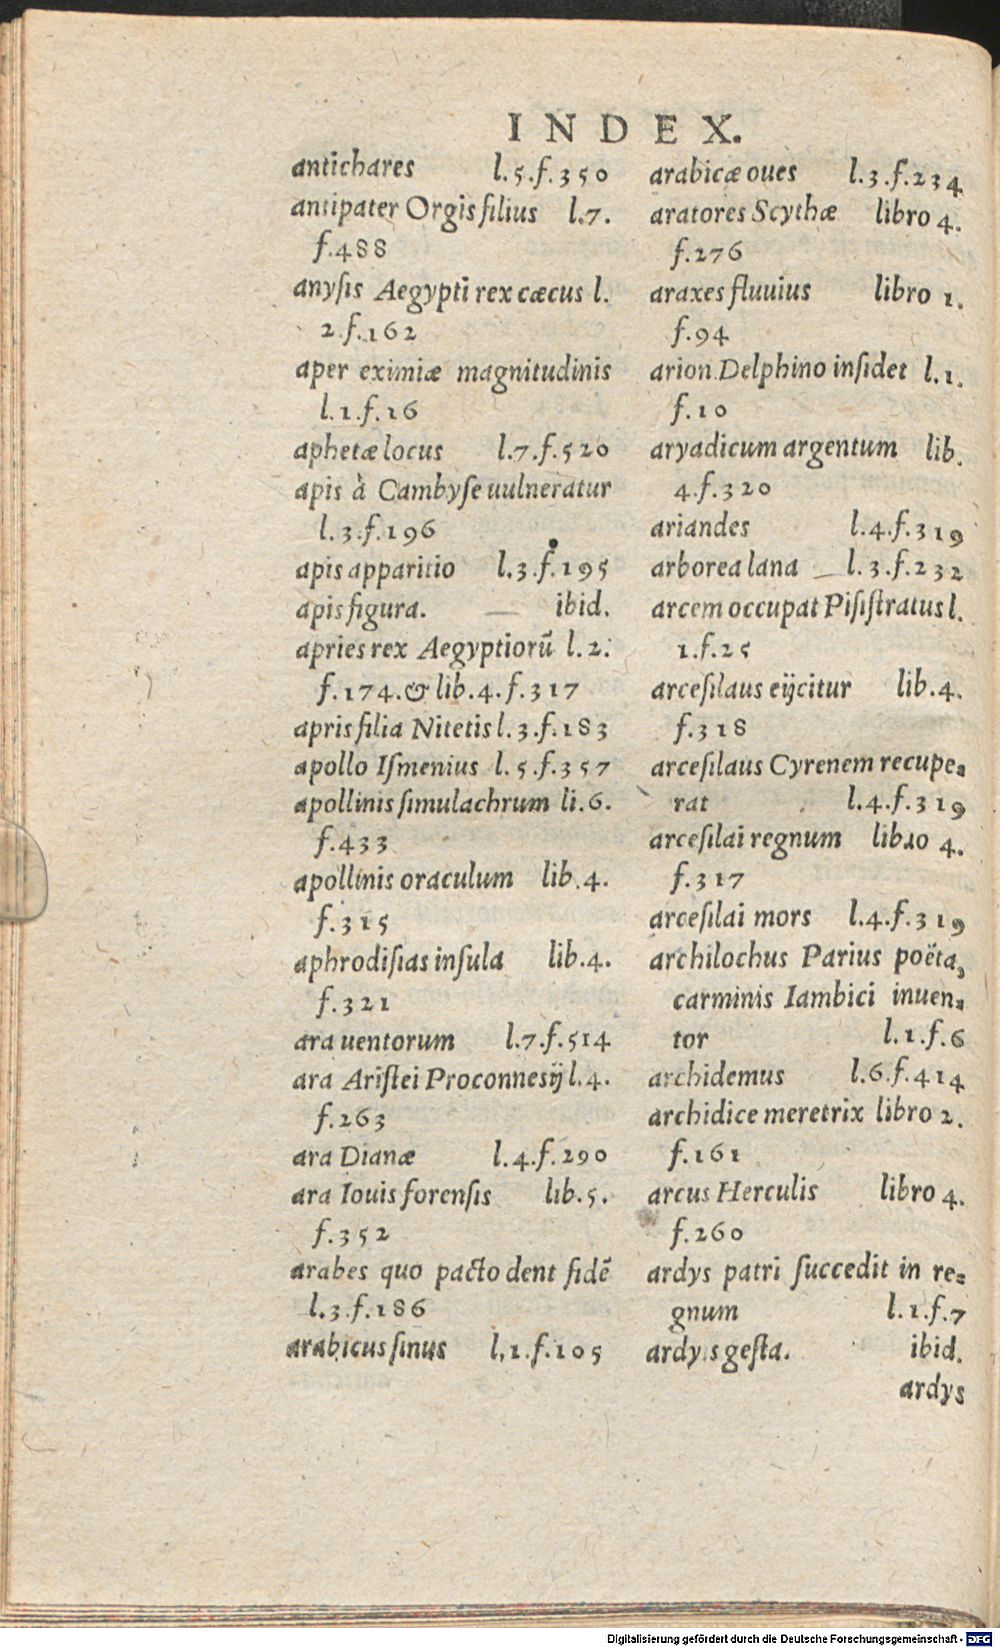 INDEX.
antichares l.5.f.350
antipater Orgis filius l.7.
f.488
anysis Aegypti rex cæcus l.
2.f.162
aper eximiæ magnitudinis
l.1.f.16
aphetæ locus l.7.f.520
apis à Cambyse uulneratur
l.3.f.196
apis apparitio l.3.f.195
apis figura. ibid.
apries rex Aegyptiorũ l.2.
f.174.& lib.4.f.317
apris filia Nitetis l.3.f.183
apollo Ismenius l.5.f.357
apollinis simulachrum li.6.
f.433
apollinis oraculum lib.4.
f.315
aphrodisias insula lib.4.
f.321
ara uentorum l.7.f.514
ara Aristei Proconnesij l.4.
f.263
ara Dianæ l.4.f.290
ara Iouis forensis lib.5.
f.352
arabes quo pacto dent fidẽ
l.3.f.186
arabicus sinus l,1.f.105
arabicæ oues l.3.f.234
aratores Scythæ libro 4.
f.276
araxes fluuius libro 1.
f.94
arion Delphino insidet l.1.
f.10
aryadicum argentum lib.
4.f.320
ariandes l.4.f.319
arborea lana l.3.f.232
arcem occupat Pisistratus l.
1.f.25
arcesilaus eijcitur lib.4.
f.318
arcesilaus Cyrenem recupe-
rat l.4.f.319
arcesilai regnum libro 4.
f.317
arcesilai mors l.4.f.319
archilochus Parius poëta,
carminis Iambici inuen-
tor l.1.f.6
archidemus l.6.f.414
archidice meretrix libro 2.
f.161
arcus Herculis libro 4.
f.260
ardys patri succedit in re-
gnum l.1.f.7
ardys gesta. ibid.
ardys
Digitalisierung gefördert durch die Deutsche Forschungsgemeinschaft - DFG